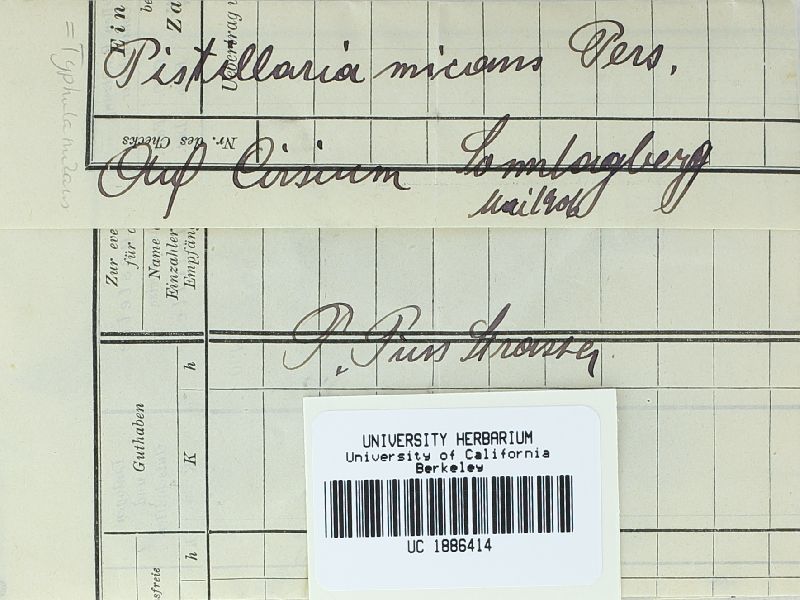 Ein
be
Za
Uebertrag
Pistillaria micans Pers.
= Typhula micans
Nr. des Checks
Auf Cirsium Sonntagberg
Mai 1906
Zur eve
für d
Name
Einzahler
Empfän
P. Pius Strasser
h
Guthaben
K
h
sfreie
UNIVERSITY HERBARIUM
University of California
Berkeley
UC 1886414